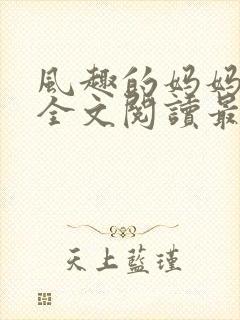 風趣的妈妈
全文閱讀最
天上藍瑾